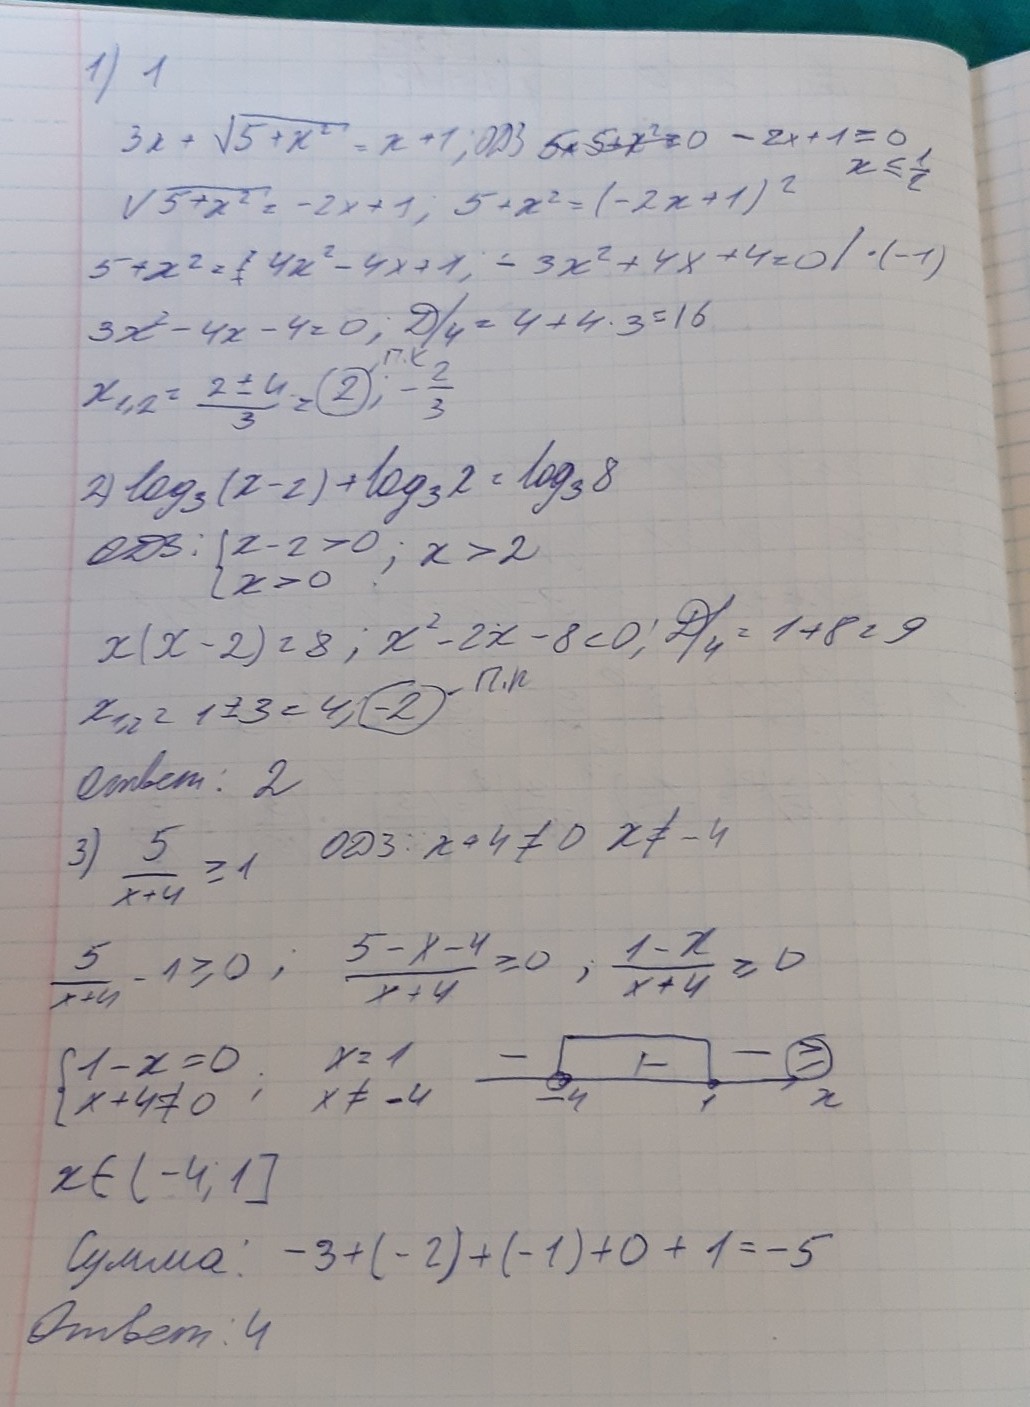 1) 1
3x + √(5+x²) = x+1; ОДЗ 5+x²≥0 -2x+1≥0
x ≤ 1/2
√(5+x²) = -2x+1; 5+x² = (-2x+1)²
5+x² = 4x²-4x+1; -3x²+4x+4=0 / ·(-1)
3x²-4x-4=0; Д/4 = 4+4·3=16
x₁,₂ = (2±4)/3 = 2; -2/3
п.к
2) log₃(x-2)+log₃x = log₃8
ОДЗ: {x-2>0; x>2
{x>0
x(x-2)=8; x²-2x-8=0; Д/4 = 1+8=9
x₁,₂ = 1±3 = 4; -2 п.к
Ответ: 2
3) 5/(x+4) ≥ 1 ОДЗ: x+4≠0 x≠-4
5/(x+4) - 1 ≥ 0; (5-x-4)/(x+4) ≥ 0; (1-x)/(x+4) ≥ 0
{1-x=0; x=1 − + − ≥
{x+4≠0 x≠-4 -4 1 x
x∈(-4;1]
Сумма: -3+(-2)+(-1)+0+1=-5
Ответ: 4